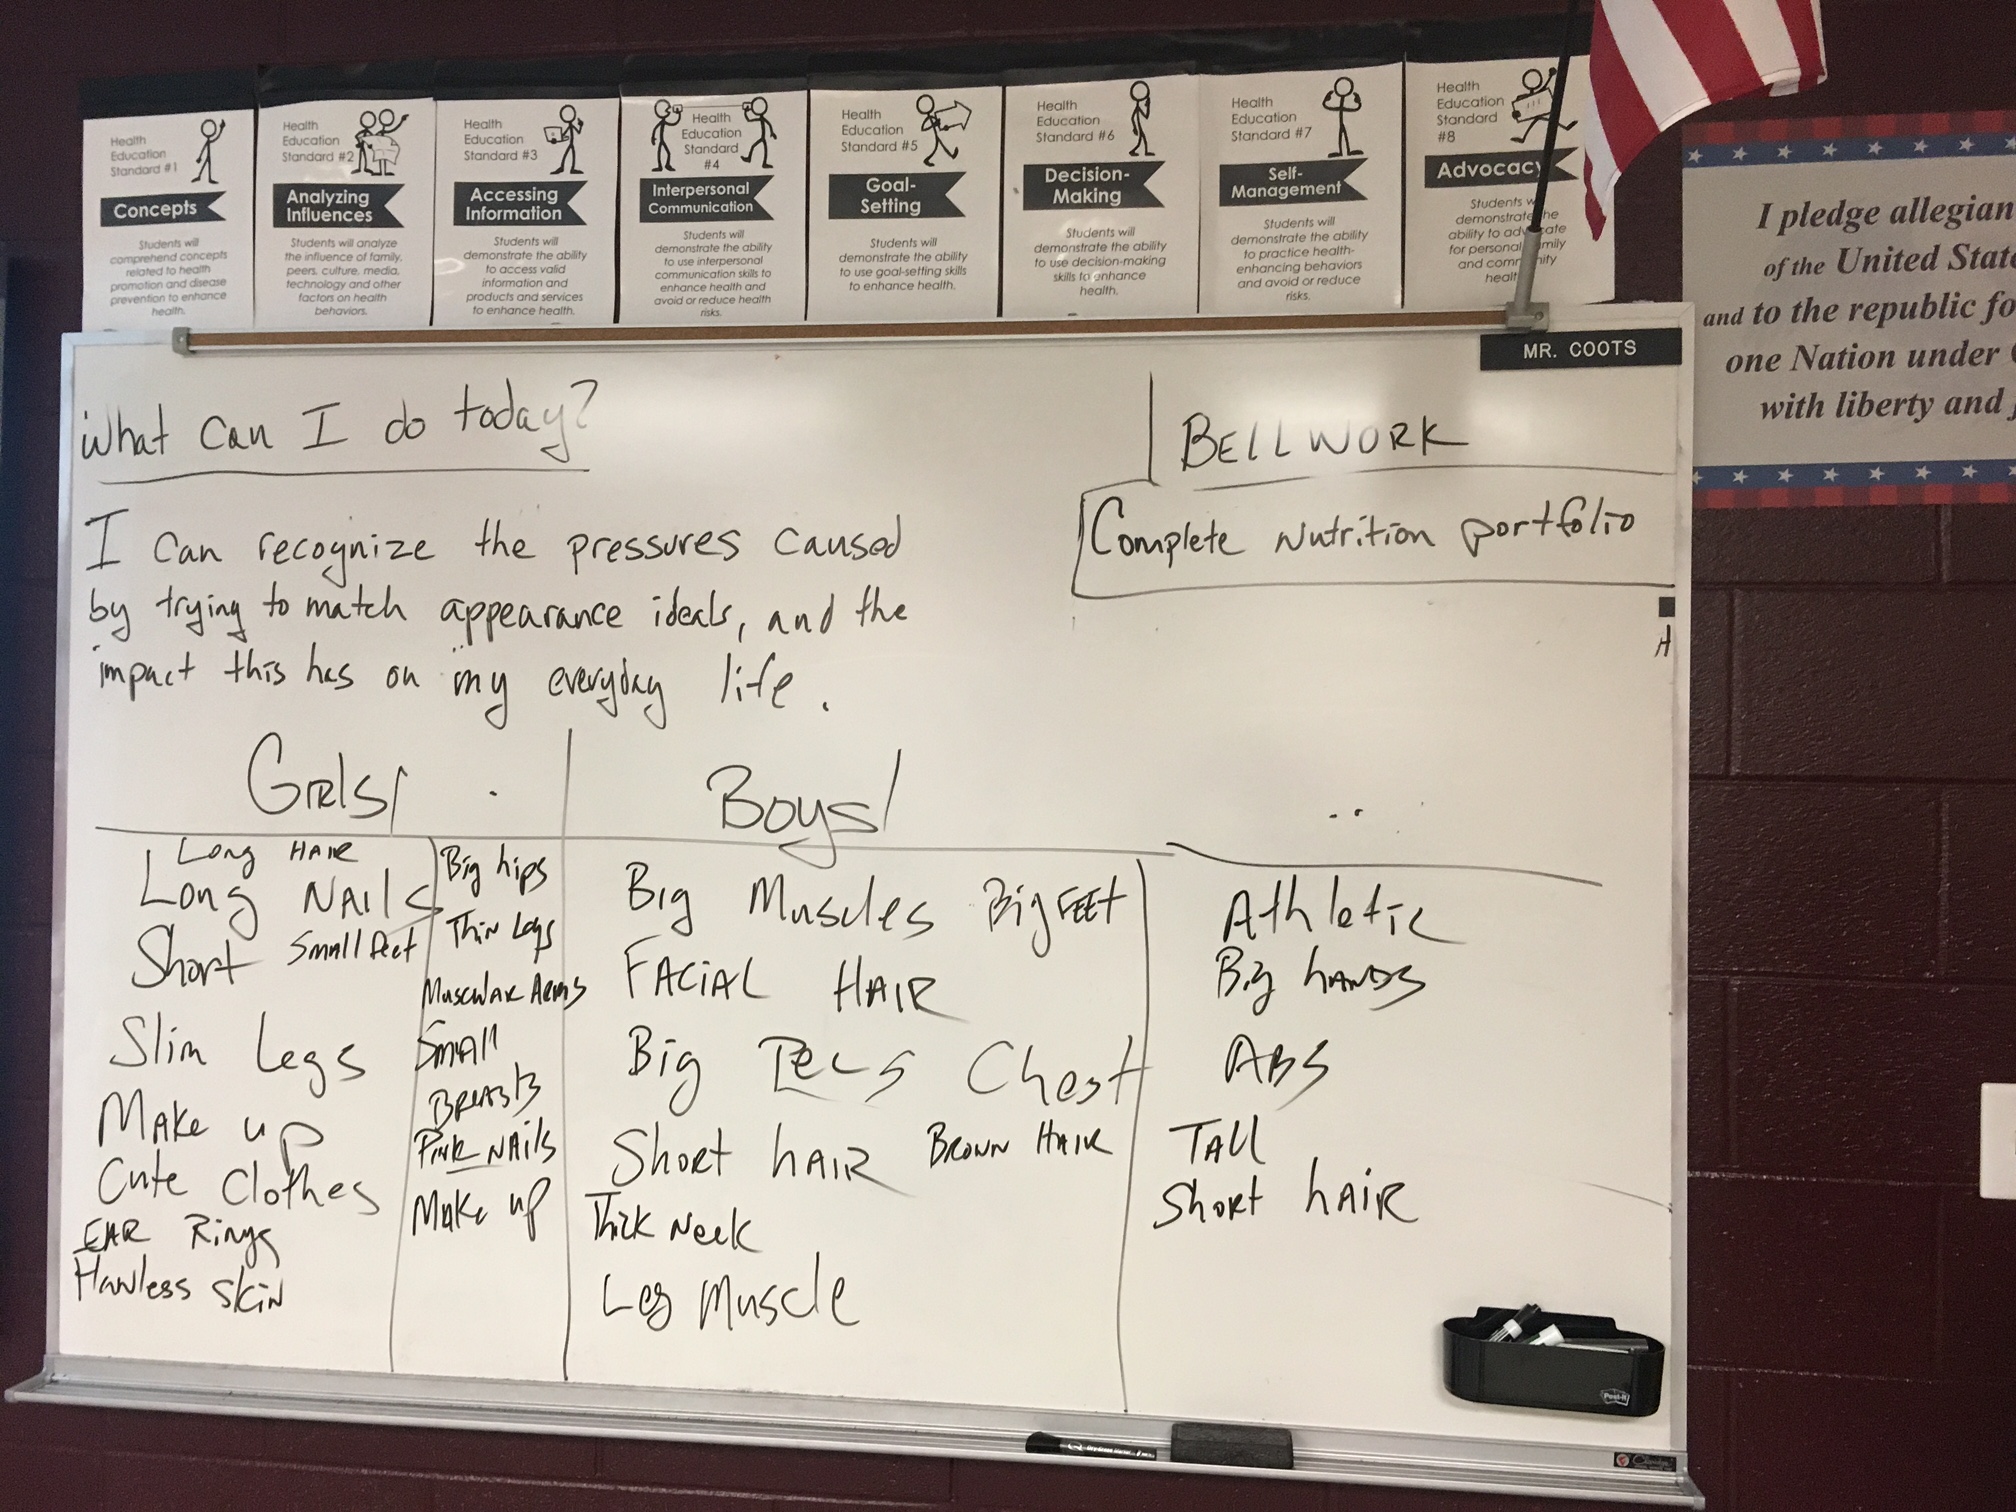 Health
Education
Standard #1
Concepts
Students will
comprehend concepts
related to health
promotion and disease
prevention to enhance
health.
Health
Education
Standard #2
Analyzing
Influences
Students will analyze
the influence of family,
peers, culture, media,
technology and other
factors on health
behaviors.
Health
Education
Standard #3
Accessing
Information
Students will
demonstrate the ability
to access valid
information and
products and services
to enhance health.
Health
Education
Standard
#4
Interpersonal
Communication
Students will
demonstrate the ability
to use interpersonal
communication skills to
enhance health and
avoid or reduce health
risks.
Health
Education
Standard #5
Goal-
Setting
Students will
demonstrate the ability
to use goal-setting skills
to enhance health.
Health
Education
Standard #6
Decision-
Making
Students will
demonstrate the ability
to use decision-making
skills to enhance
health.
Health
Education
Standard #7
Self-
Management
Students will
demonstrate the ability
to practice health-
enhancing behaviors
and avoid or reduce
risks.
Health
Education
Standard
#8
Advocacy
Students
demonstrate the
ability to advocate
for personal family
and community
health
I pledge allegian
of the United State
and to the republic fo
one Nation under
with liberty and
MR. COOTS
What can I do today?
I can recognize the pressures caused
by trying to match appearance ideals, and the
impact this has on my everyday life.
BELLWORK
Complete Nutrition portfolio
H
Girls!
Long HAIR
Long NAILS
Short Small feet
Slim Legs
Make up
Cute Clothes
EAR Rings
Flawless skin
Big hips
Thin Legs
Muscular Arms
Small
Breasts
Pink NAils
Make up
Boys!
Big Muscles Big FEET
FACIAL HAIR
Big Pecs Chest
Short hAIR BROWN HAIR
Thick Neck
Leg Muscle
Athletic
Big hANDS
ABS
TAll
Short hAIR
Post-it